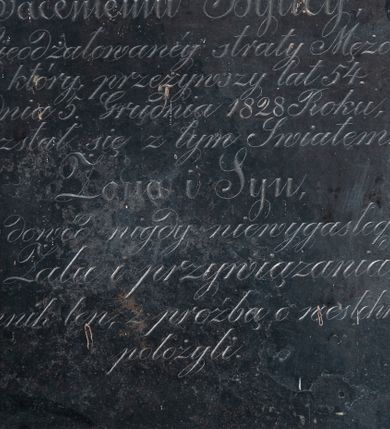 Bytley,
nieodżałowanéy straty Męża
który przeżywszy lat 54.
dnia 5. Grudnia 1828 Roku,
zstał się z tym Światem
Żona i Syn,
dowód nigdy niewygasłego
Żalu i przywiązania
ten z proźbą o
położyli.